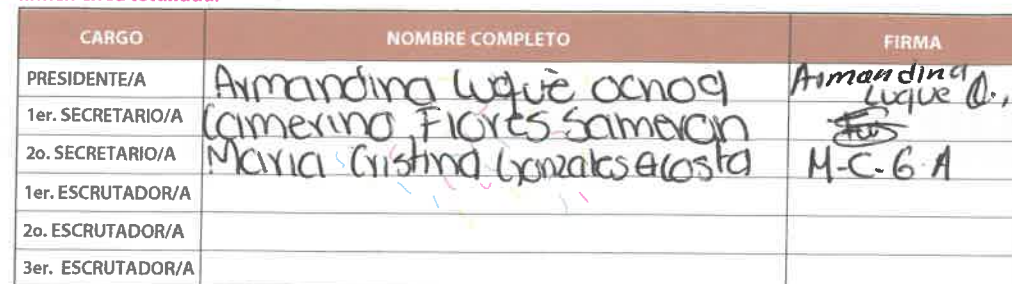 CARGO NOMBRE COMPLETO FIRMA
PRESIDENTE/A Armandina Luque ochoa Armandina Luque O.,
1er. SECRETARIO/A Camerino Flores Sameran
2o. SECRETARIO/A Maria Cristina Gonzales Acosta M-C-G-A
1er. ESCRUTADOR/A
2o. ESCRUTADOR/A
3er. ESCRUTADOR/A